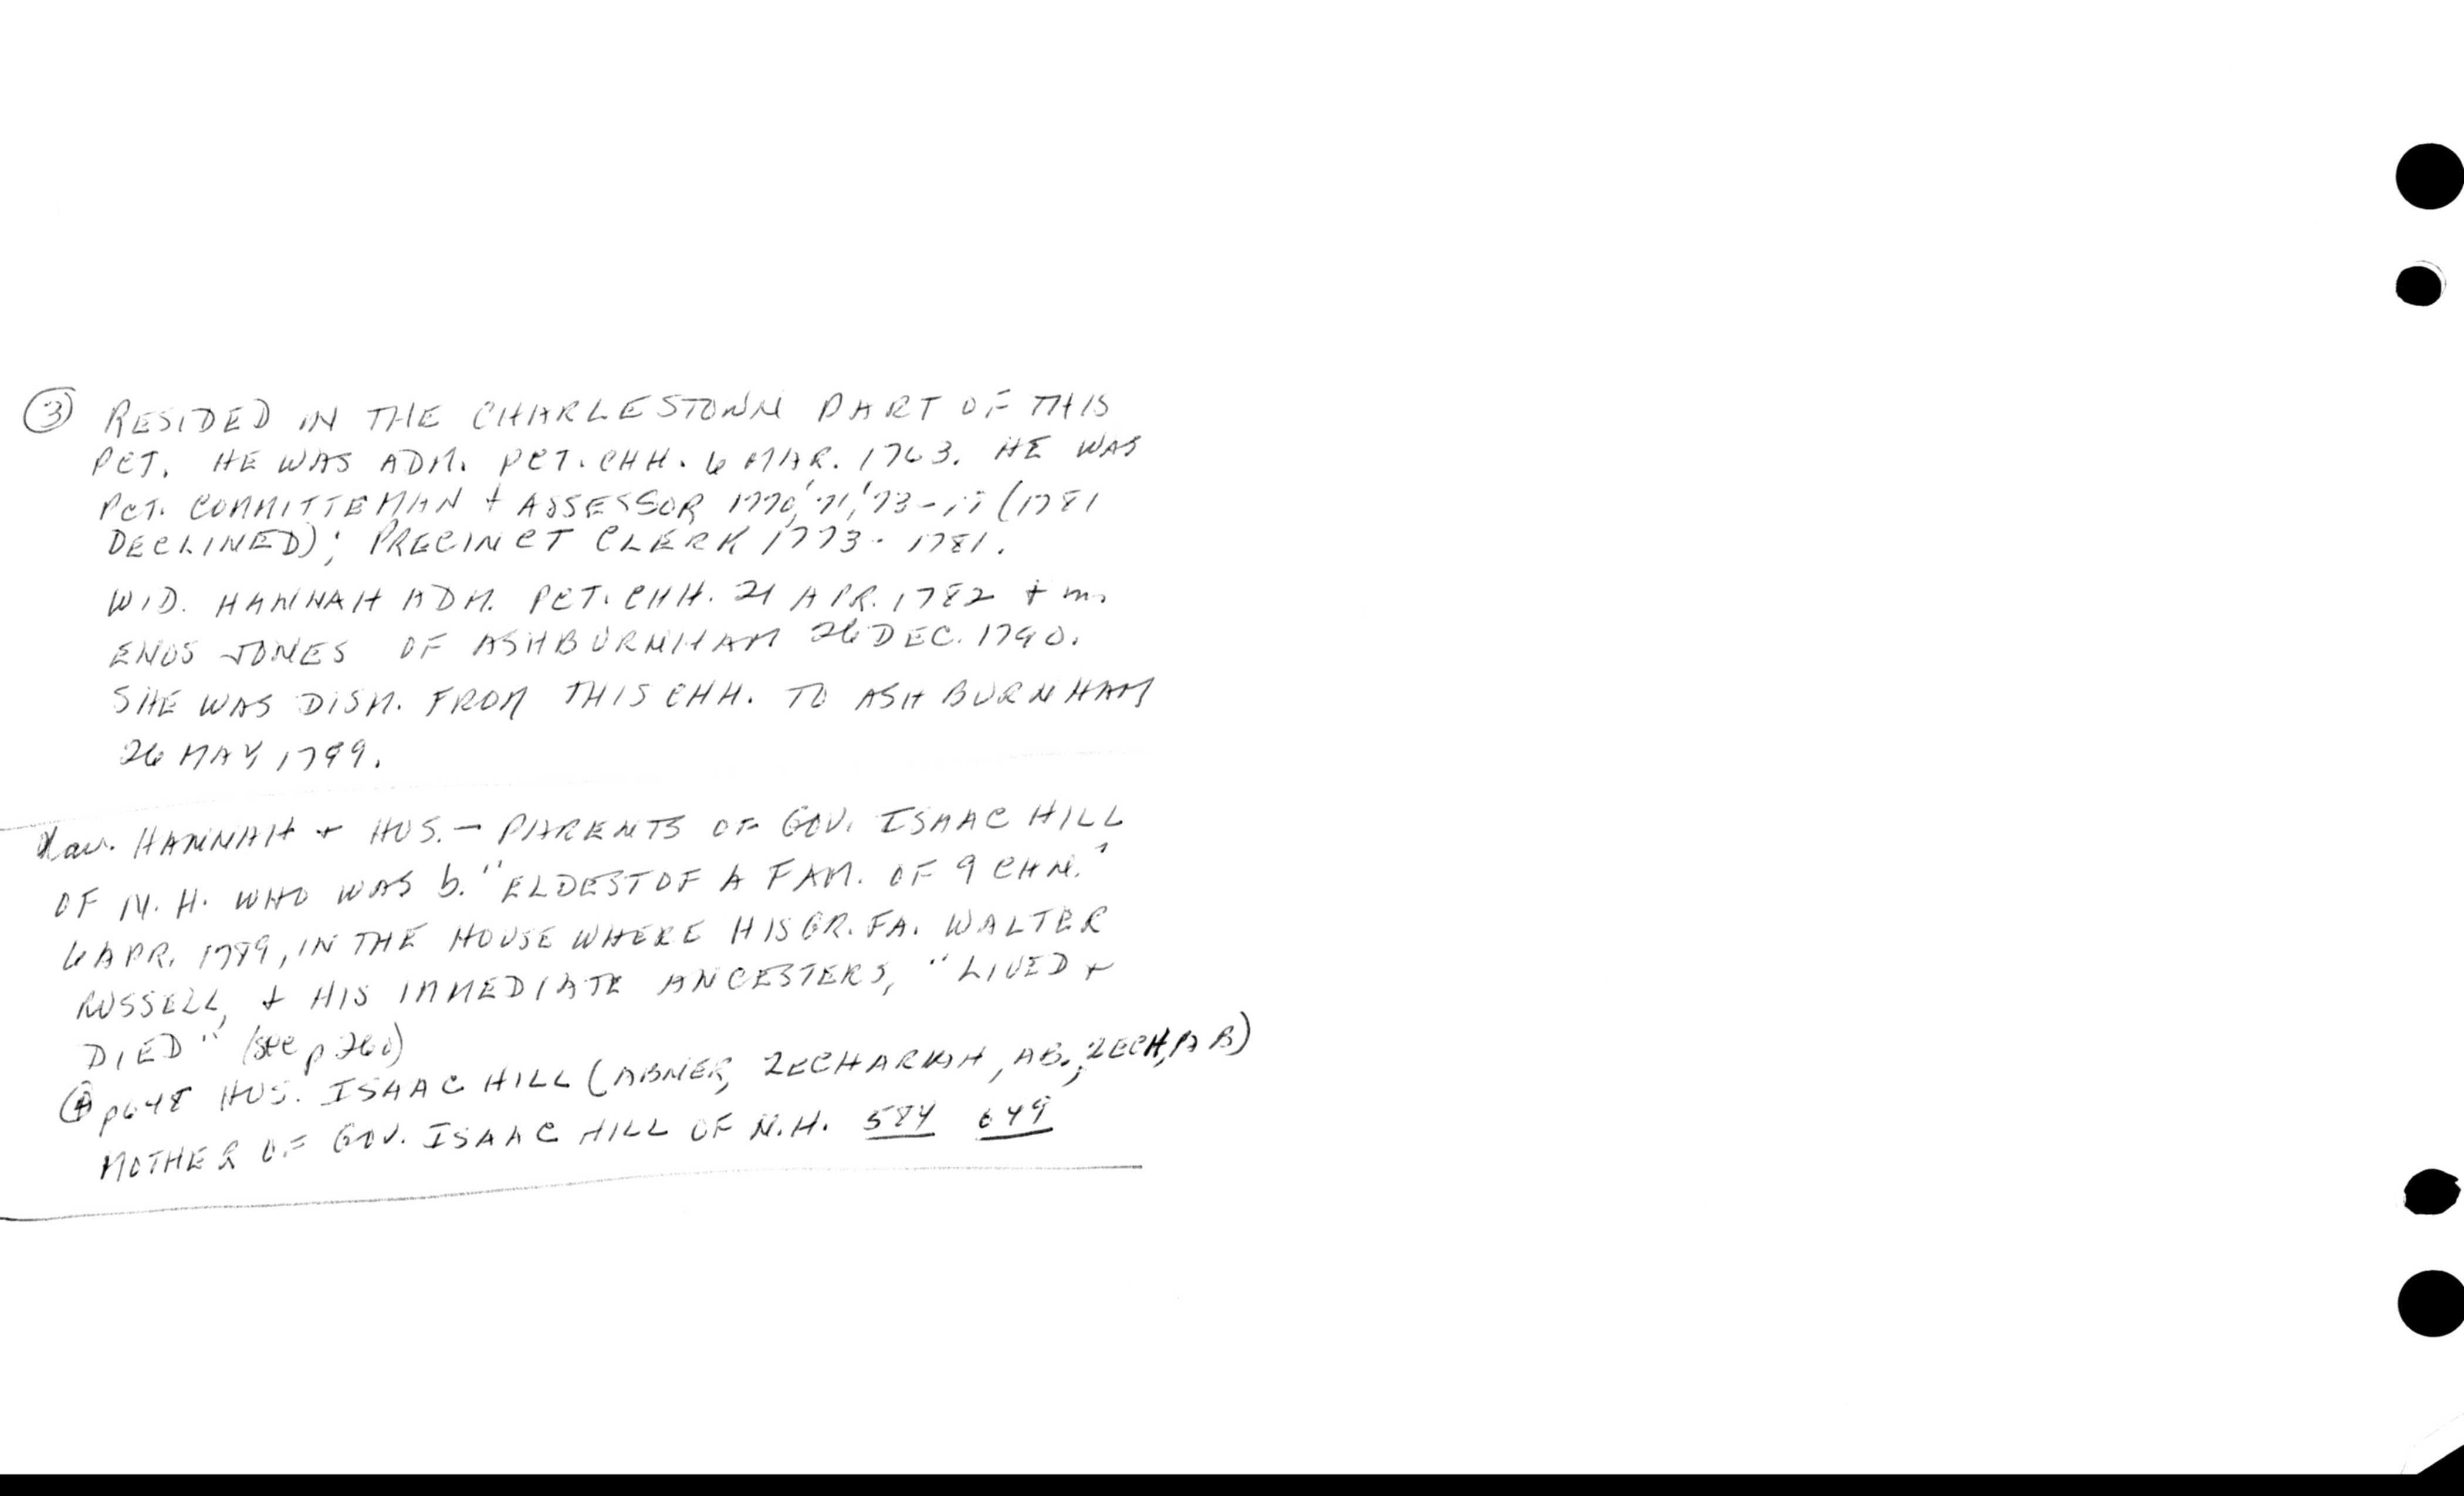 ③ RESIDED IN THE CHARLESTOWN PART OF THIS
PCT. HE WAS ADM. PCT. CHH. 6 MAR. 1763. HE WAS
PCT. COMMITTEMAN + ASSESSOR 1770,'71,'73- (1781
DECLINED); PRECINCT CLERK 1773- 1781.
WID. HANNAH ADM. PCT. CHH. 21 APR. 1782 + m.
ENOS JONES OF ASHBURNHAM 26 DEC. 1790.
SHE WAS DISM. FROM THIS CHH. TO ASHBURNHAM
26 MAY 1799.
dau. HANNAH + HUS. - PARENTS OF GOV. ISAAC HILL
OF N.H. WHO WAS b. "ELDEST OF A FAM. OF 9 CHN."
6 APR. 1789, IN THE HOUSE WHERE HIS GR. FA. WALTER
RUSSELL, + HIS IMMEDIATE ANCESTERS, "LIVED +
DIED" (see p 260)
p648 HUS. ISAAC HILL (ABNER, ZECHARIAH, AB., ZECH, AB)
MOTHER OF GOV. ISAAC HILL OF N.H. 584 649